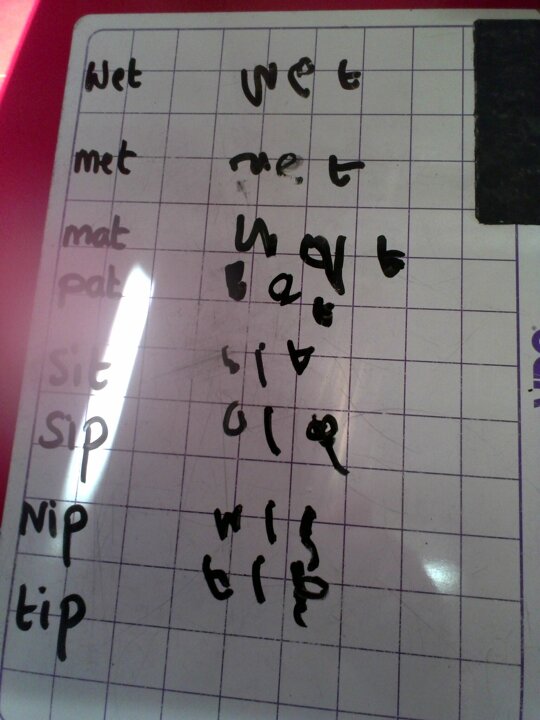 Wet wet
met met
mat mat
pat pat
Sit sit
Sip
Nip nip
tip tip